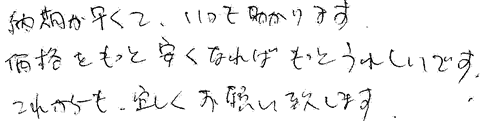 納期が早くて、いつも助かります.
価格をもっと安くなればもっとうれしいです.
これからも、宜しくお願い致します.